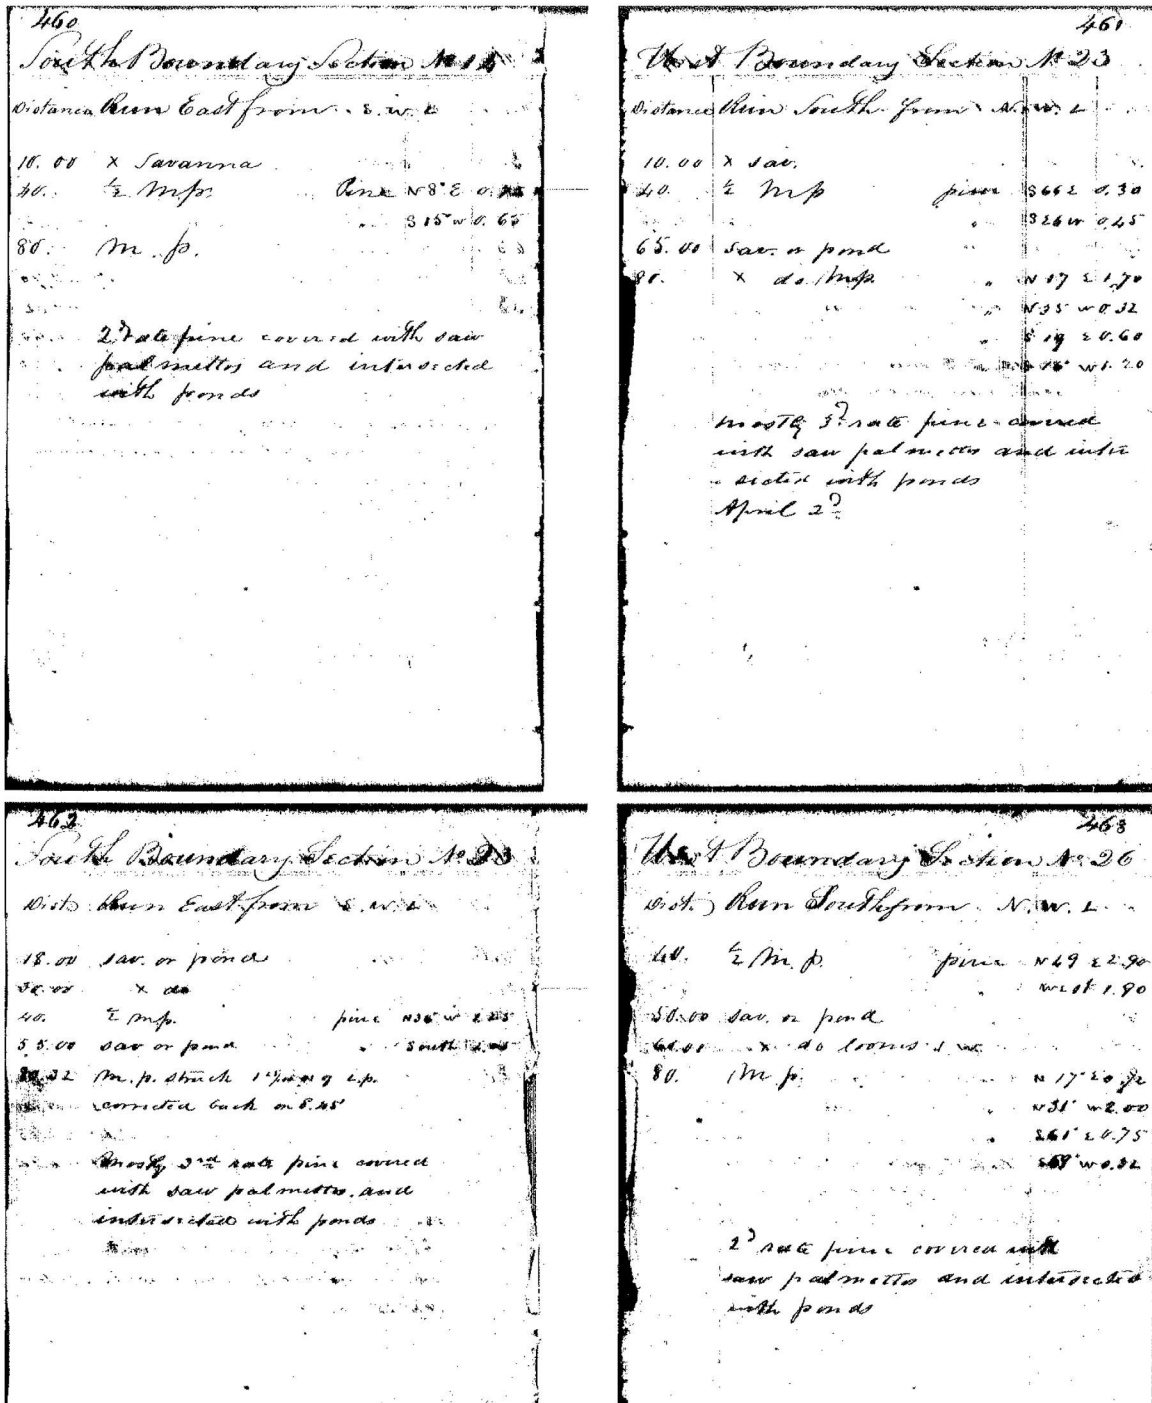 460
South Boundary Section No 14
Distance Run East from S. W. C
10.00 x Savanna
40. ½ M.p. Pine N8°E
" S15 W 0.65
80. M. p.
2d rate pine covered with saw
palmettos and intersected
with ponds
461
West Boundary Section No 23
Distance Run South from N. W. C
10.00 x sav.
40. ½ M p pine S66 E 0.30
" S26 W 0.45
65.00 sav. or pond
80. x do M.p. " N17 E 1.70
" N35 W 0.32
" S19 E 0.60
W 1.20
mostly 3d rate pine covered
with saw palmettos and inter
sected with ponds
April 2d
462
South Boundary Section No 23
Dist. Run East from S. W. C
18.00 sav. or pond
30.00 x do
40. ½ M.p. pine N36 W
55.00 sav or pond " South
80.32 M.p. struck N of E.p.
corrected back on
mostly 3rd rate pine covered
with saw palmettos and
intersected with ponds
463
West Boundary Section No 26
Dist. Run South from N. W. C
40. ½ M. p. pine N49 E 2.90
" West 1.90
50.00 sav. or pond
60.00 x do S W
80. M p. " N 17° E
" N31° W 2.00
" S61° E 0.75
S69° W 0.52
2d rate pine covered with
saw palmettos and intersected
with ponds